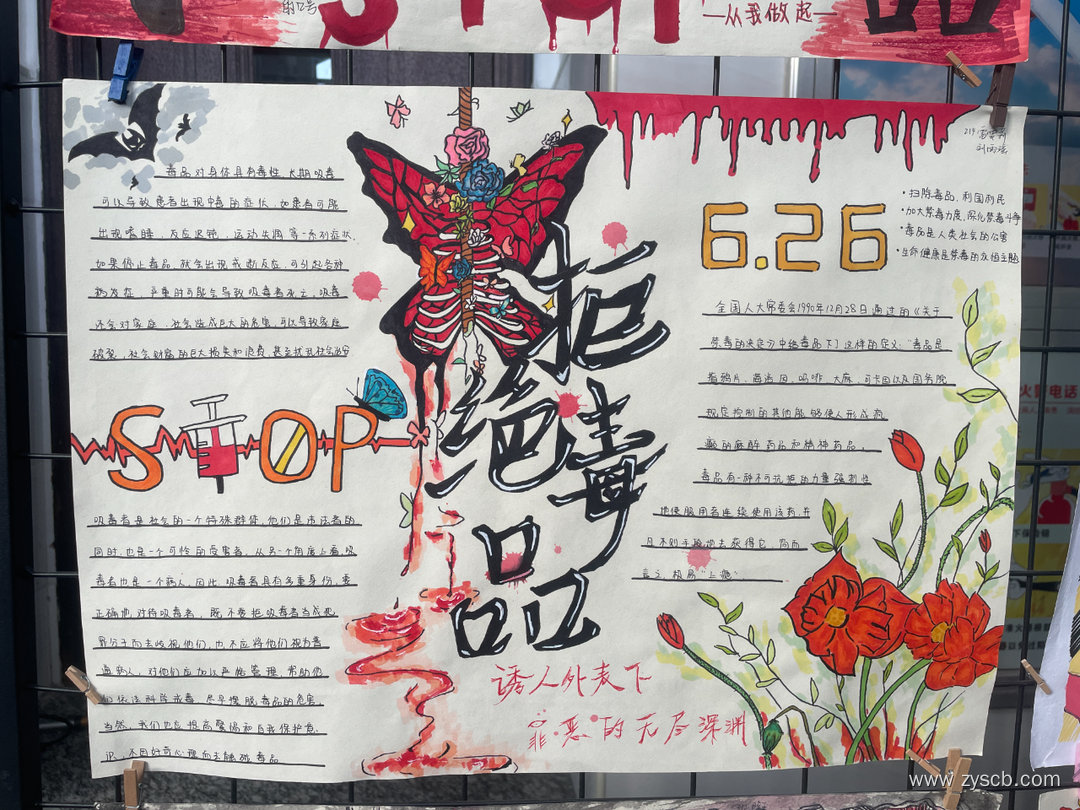 从我做起
毒品对身体具有毒性,长期吸毒
可以导致患者出现中毒的症状,如患者可能
出现嗜睡,反应迟钝,运动失调等一系列症状.
如果停止毒品,就会出现戒断反应,可引起各种
病发症,严重时可能会导致吸毒者死亡,吸毒
还会对家庭、社会造成巨大的危害,可以导致家庭
破裂,社会财富的巨大损失和浪费,甚至扰乱社会治安
STOP
吸毒者是社会的一个特殊群体,他们是违法者的
同时,也是一个可怜的受害者,从另一个角度上看,吸
毒者也是一个病人,因此,吸毒者具有多重身份,要
正确地对待吸毒者,既不要把吸毒者当成犯
罪分子而去歧视他们,也不应将他们视为普
通病人,对他们应加以严格管理,帮助他
们依法科学戒毒,尽早摆脱毒品的危害,
当然,我们也应提高警惕和自我保护意
识,不因好奇心理而去触碰毒品
拒绝毒品
诱人外表下
罪恶的无尽深渊
219
6.26
·扫除毒品,利国利民
·加大禁毒力度,深化禁毒斗争
·毒品是人类社会的公害
·生命健康是禁毒的友相主题
全国人大常委会1990年12月28日通过的《关于
禁毒的决定》中给毒品下了这样的定义:“毒品是
指鸦片、海洛因、吗啡、大麻、可卡因以及国务院
规定控制的其他能够使人形成瘾
癖的麻醉药品和精神药品。
毒品有一种不可抗拒的力量强制性
地使服用者连续使用该药,并
且不则手段地去获得它,简而
言之,极易“上瘾”
www.zyscb.com